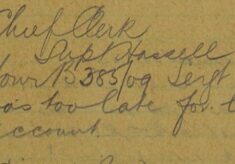 Chief Clerk
Supt Hassell
Your 15385/09 Sergt
was too late for
account